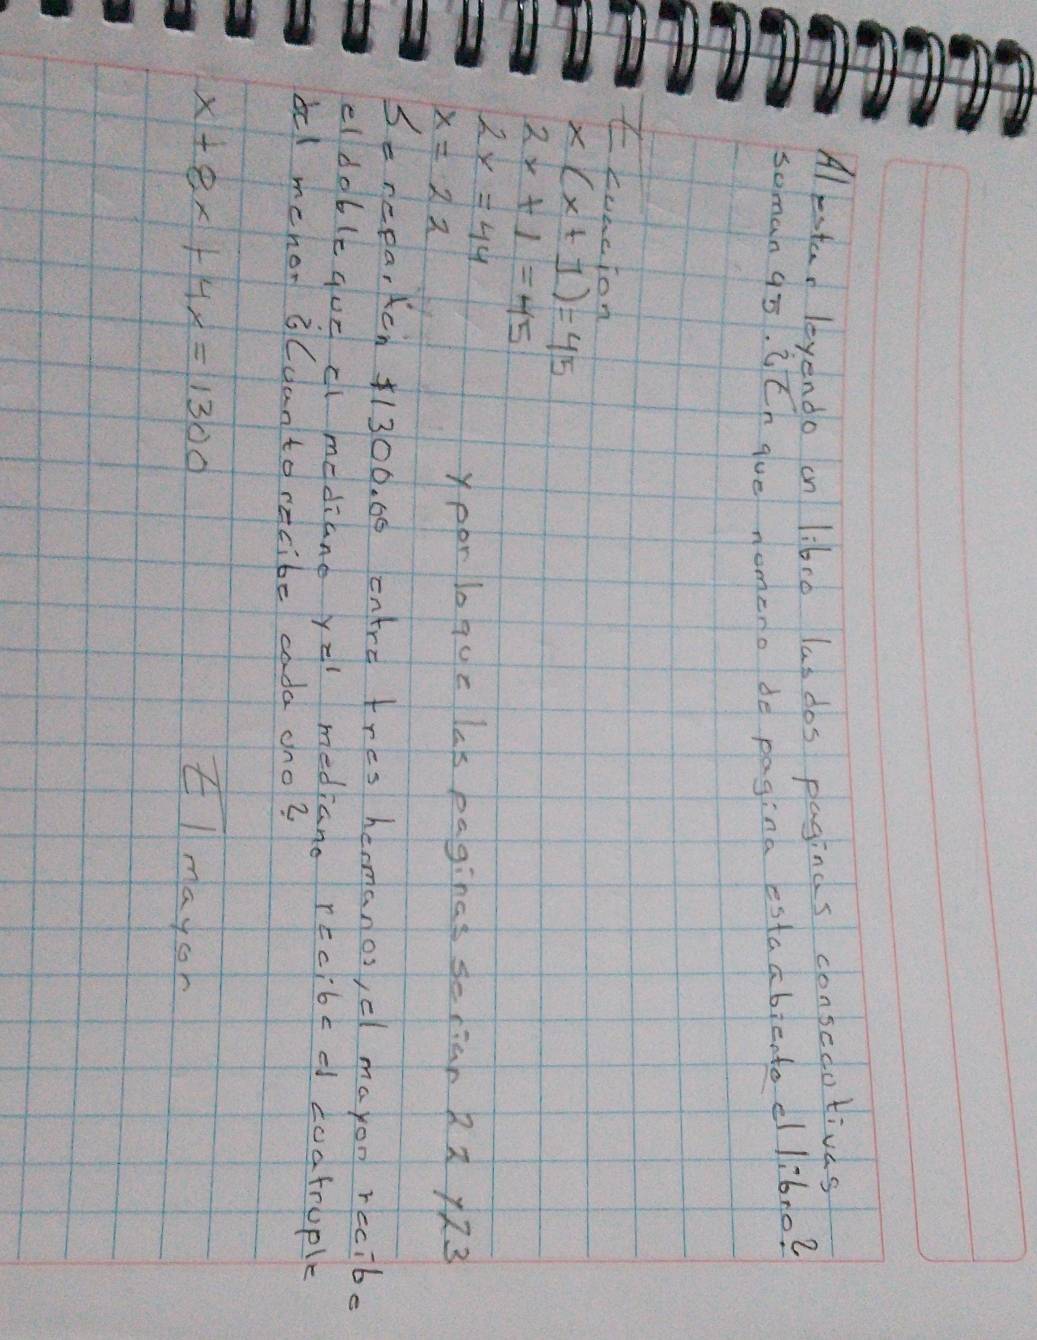 Al estar leyendo un libro las dos paginas consecutivas
suman 45. ¿En que numero de pagina esta abierto el libro?
Ecuacion
x(x+1)=45
2x+1=45
2x=44
x=22 y por lo que las paginas serian 22 y 23
Se reparten $1300.00 entre tres hermanos, el mayor recibe
el doble que el mediano y el mediano recibe el cuatruple
del menor ¿Cuanto recibe cada uno?
x+8x+4x=1300 El mayor